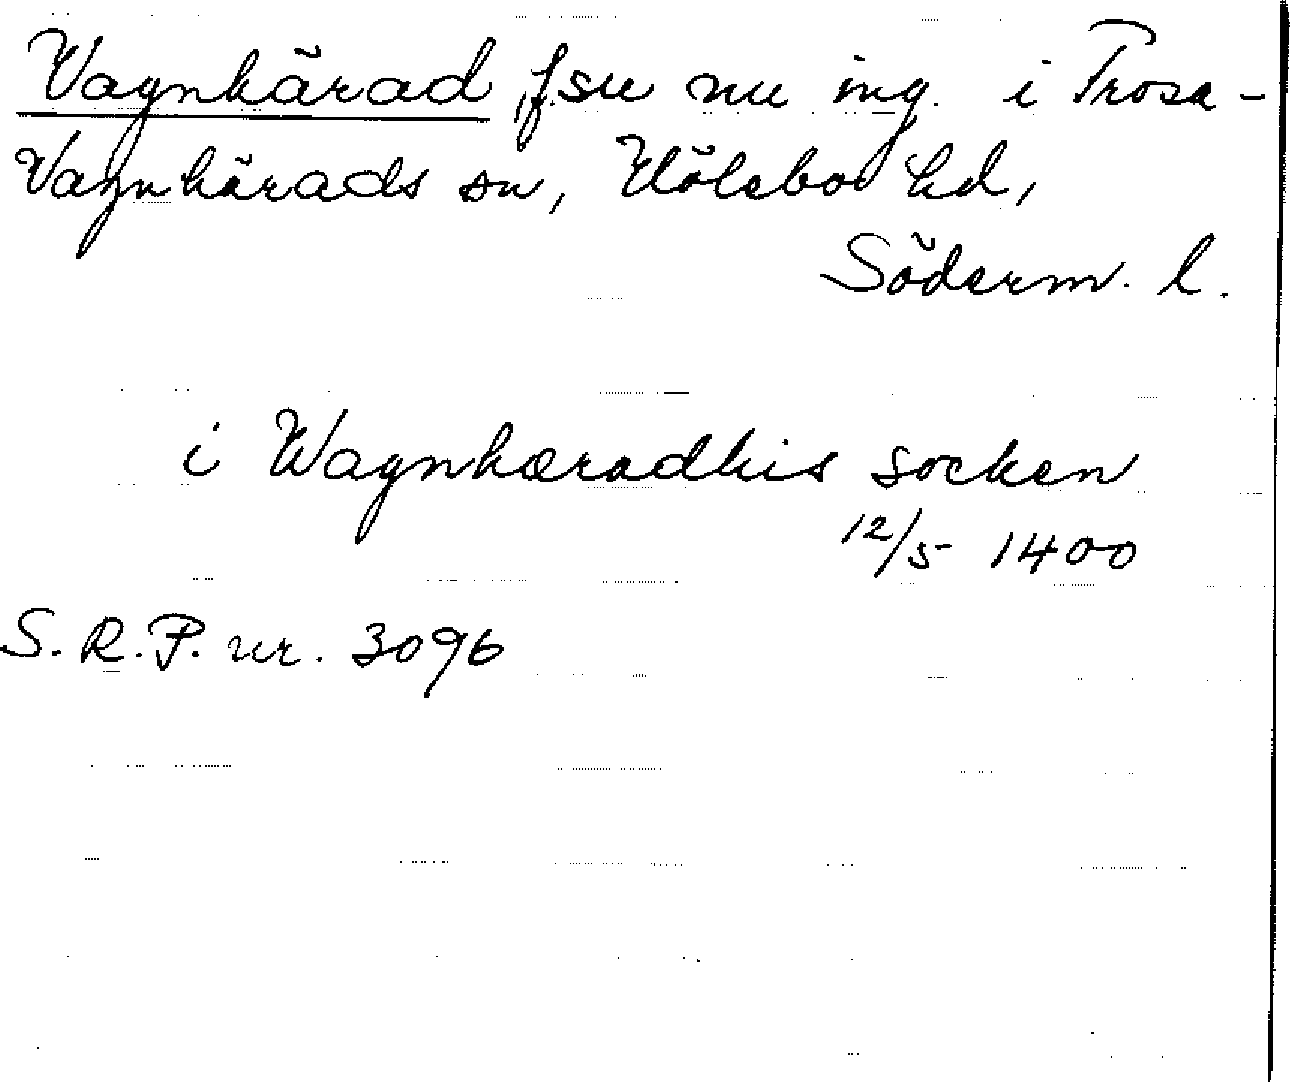 Vagnhärad, f.sn nu ing. i Trosa-
Vagnhärads sn, Hölebo hd,
Söderm. l.
i Wagnhæradhis socken
12/5 1400
S.R.P. nr. 3096